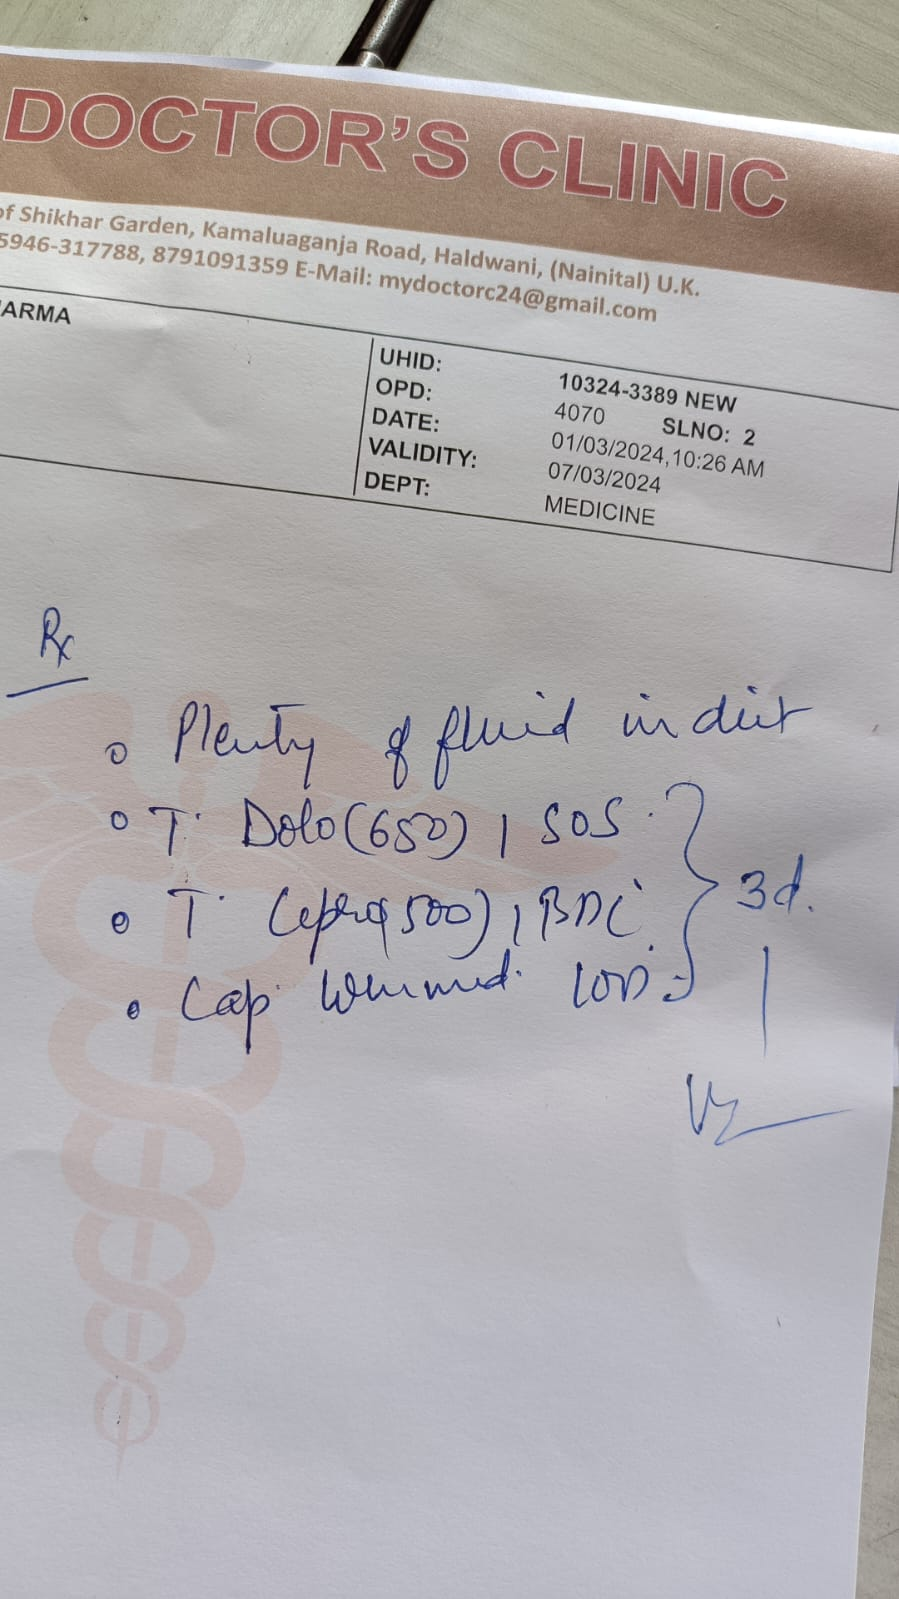 DOCTOR'S CLINIC
of Shikhar Garden, Kamaluaganja Road, Haldwani, (Nainital) U.K.
5946-317788, 8791091359 E-Mail: mydoctorc24@gmail.com
ARMA
UHID: 10324-3389 NEW
OPD: 4070 SLNO: 2
DATE: 01/03/2024,10:26 AM
VALIDITY: 07/03/2024
DEPT: MEDICINE
Rx
Plenty of fluid in diet
T. Dolo (650) 1 SOS
T. 500) 1 BD
Cap. 1 OD
3d.